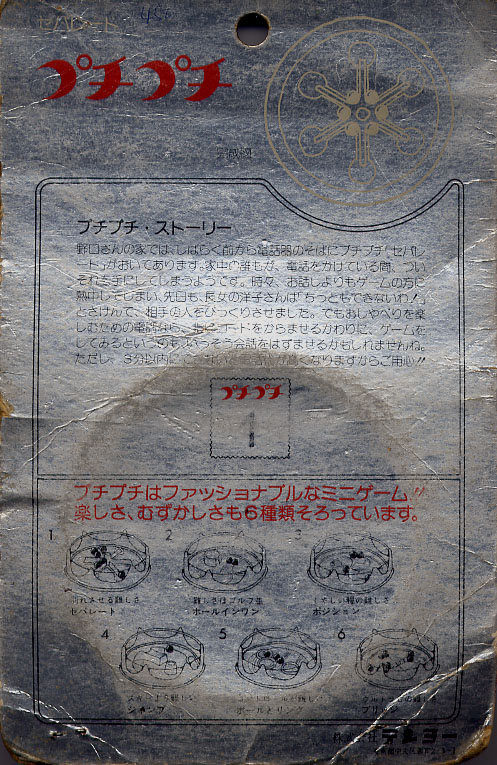 セパレート
プチプチ
プチプチ・ストーリー
野口さんの家では、しばらく前から電話器のそばにプチプチ“セパレ
ート”がおいてあります。家中の誰もが、電話をかけている間、つい
それを手にしてしまうようです。時々、お話しよりもゲームの方に
熱中してしまい、先日も、長女の洋子さんは「ちっともできないわ!」
とさけんで、相手の人をびっくりさせました。でもおしゃべりを楽
しむための電話なら、指にコードをからませるかわりに、ゲームを
してみるというのも、いっそう会話をはずませるかもしれませんね。
ただし、3分以内に
なりますからご用心!!
プチプチ
1
プチプチはファッショナブルなミニゲーム!!
楽しさ、むずかしさも6種類そろっています。
1 2 3
セパレート ホールインワン ポジション
4 5 6
ジャンプ ボールとリング
株式会社 テンヨー